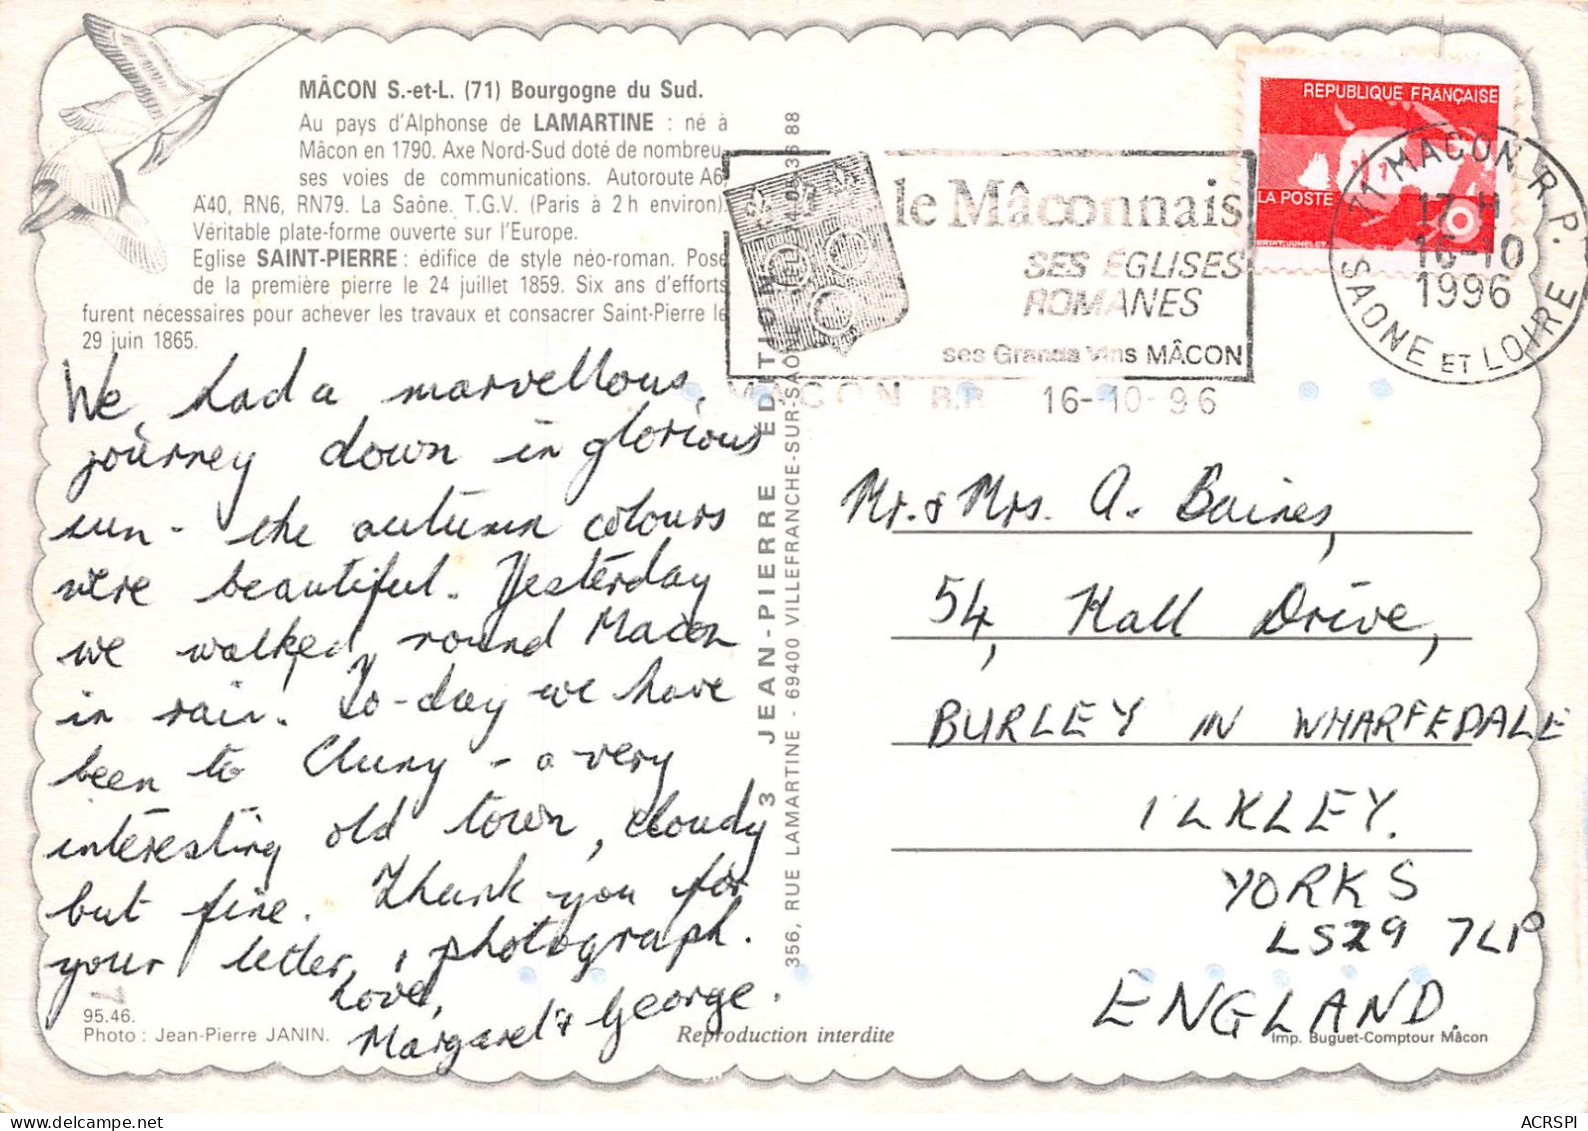 MÂCON S.-et-L. (71) Bourgogne du Sud.
Au pays d'Alphonse de LAMARTINE : né à
Mâcon en 1790. Axe Nord-Sud doté de nombreu-
ses voies de communications. Autoroute A6
A40, RN6, RN79. La Saône. T.G.V. (Paris à 2 h environ).
Véritable plate-forme ouverte sur l'Europe.
Eglise SAINT-PIERRE : édifice de style néo-roman. Pose
de la première pierre le 24 juillet 1859. Six ans d'efforts
furent nécessaires pour achever les travaux et consacrer Saint-Pierre le
29 juin 1865.
We had a marvellous
journey down in glorious
sun - the autumn colours
were beautiful. Yesterday
we walked round Macon
in rain. To-day we have
been to Cluny - a very
interesting old town, cloudy
but fine. Thank you for
your letter, & photograph.
Love,
Margaret & George.
95.46.
Photo : Jean-Pierre JANIN.
Reproduction interdite
3 JEAN-PIERRE EDITION
356, RUE LAMARTINE - 69400 VILLEFRANCHE-SUR-SAÔNE
le Mâconnais
SES ÉGLISES
ROMANES
ses Grands Vins MÂCON
MACON R.P. 16-10-96
REPUBLIQUE FRANÇAISE
LA POSTE
71 MACON R.P.
17 H
16-10
1996
SAONE ET LOIRE
Mr. & Mrs. A. Baines,
54, Hall Drive,
BURLEY IN WHARFEDALE
ILKLEY.
YORKS
LS29 7LP
ENGLAND.
Imp. Buguet-Comptour Mâcon
ACRSPI